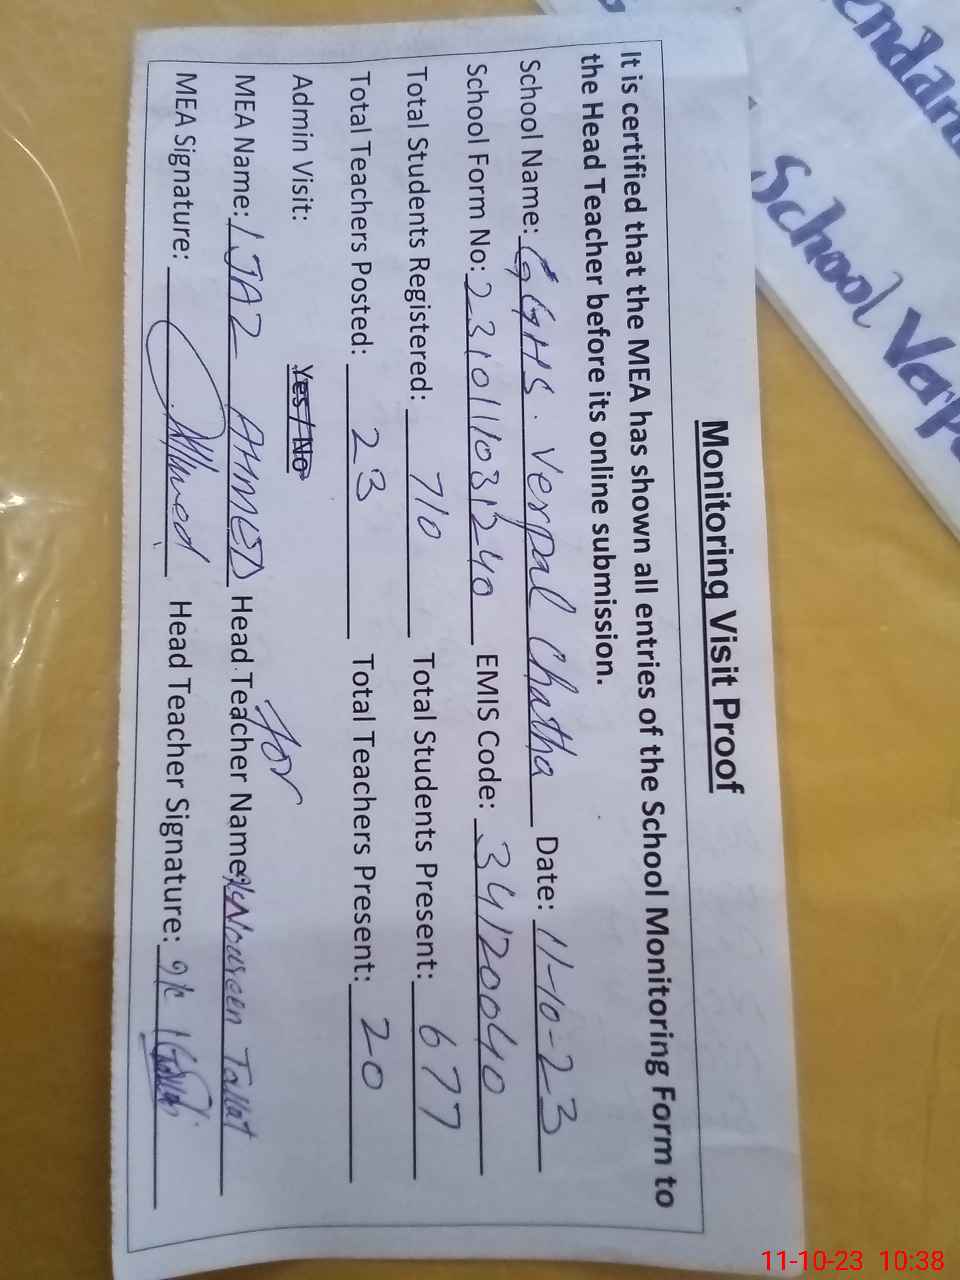 Monitoring Visit Proof
It is certified that the MEA has shown all entries of the School Monitoring Form to
the Head Teacher before its online submission.
School Name: GGHS. Verpal Chatha Date: 11-10-23
School Form No: 231011103 EMIS Code: 34120040
Total Students Registered: 710 Total Students Present: 677
Total Teachers Posted: 23 Total Teachers Present: 20
Admin Visit: Yes / No
For
MEA Name: IJAZ AHMED Head Teacher Name: Noureen Tallat
MEA Signature: Ahmed Head Teacher Signature:
School Verp
11-10-23 10:38